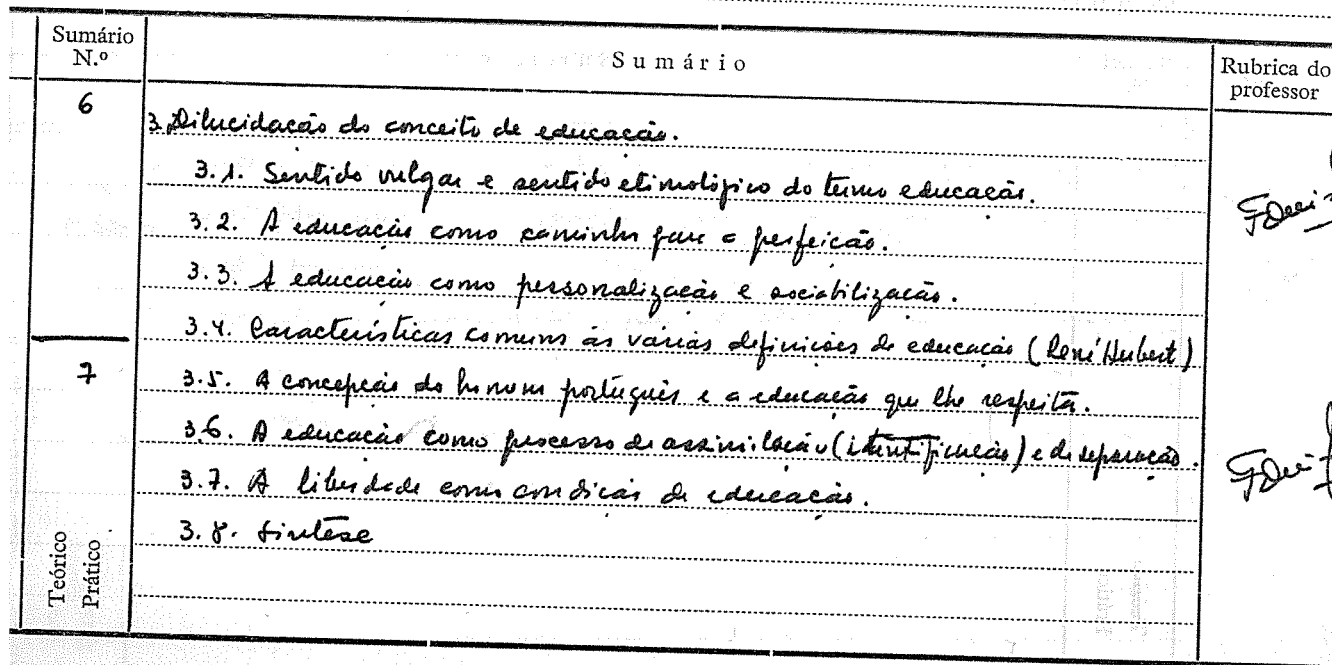 Sumário
N.º
Sumário
Rubrica do
professor
6
3. Dilucidação do conceito de educação.
3.1. Sentido vulgar e sentido etimológico do termo educação.
3.2. A educação como caminho para a perfeição.
3.3. A educação como personalização e sociabilização.
3.4. Características comuns às várias definições de educação (René Hubert)
7
3.5. A concepção do homem português e a educação que lhe respeita.
3.6. A educação como processo de assimilação (identificação) e de separação.
3.7. A liberdade como condição de educação.
3.8. Síntese
Teórico
Prático